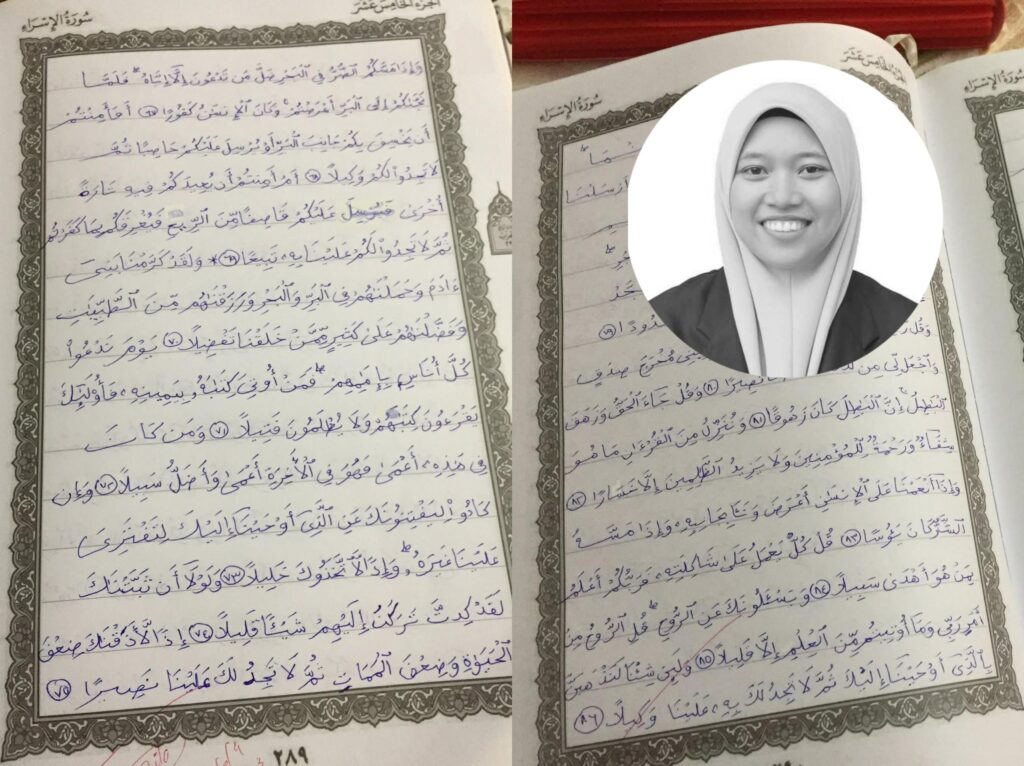 سُورَةُ الإِسْرَاءِ
الجُزْءُ الخَامِسَ عَشَرَ
وَإِذَا مَسَّكُمُ الضُّرُّ فِي الْبَحْرِ ضَلَّ مَن تَدْعُونَ إِلَّا إِيَّاهُ ۖ فَلَمَّا
نَجَّىٰكُمْ إِلَى الْبَرِّ أَعْرَضْتُمْ ۚ وَكَانَ الْإِنسَٰنُ كَفُورًا ٦٧ أَفَأَمِنتُمْ
أَن يَخْسِفَ بِكُمْ جَانِبَ الْبَرِّ أَوْ يُرْسِلَ عَلَيْكُمْ حَاصِبًا ثُمَّ
لَا تَجِدُوا۟ لَكُمْ وَكِيلًا ٦٨ أَمْ أَمِنتُمْ أَن يُعِيدَكُمْ فِيهِ تَارَةً
أُخْرَىٰ فَيُرْسِلَ عَلَيْكُمْ قَاصِفًا مِّنَ الرِّيحِ فَيُغْرِقَكُم بِمَا كَفَرْتُمْ
ثُمَّ لَا تَجِدُوا۟ لَكُمْ عَلَيْنَا بِهِۦ تَبِيعًا ٦٩ * وَلَقَدْ كَرَّمْنَا بَنِىٓ
ءَادَمَ وَحَمَلْنَٰهُمْ فِي الْبَرِّ وَالْبَحْرِ وَرَزَقْنَٰهُم مِّنَ الطَّيِّبَٰتِ
وَفَضَّلْنَٰهُمْ عَلَىٰ كَثِيرٍ مِّمَّنْ خَلَقْنَا تَفْضِيلًا ٧٠ يَوْمَ نَدْعُوا۟
كُلَّ أُنَاسٍ بِإِمَٰمِهِمْ ۖ فَمَنْ أُوتِىَ كِتَٰبَهُۥ بِيَمِينِهِۦ فَأُو۟لَٰٓئِكَ
يَقْرَءُونَ كِتَٰبَهُمْ وَلَا يُظْلَمُونَ فَتِيلًا ٧١ وَمَن كَانَ
فِى هَٰذِهِۦٓ أَعْمَىٰ فَهُوَ فِى الْأَخِرَةِ أَعْمَىٰ وَأَضَلُّ سَبِيلًا ٧٢ وَإِن
كَادُوا۟ لَيَفْتِنُونَكَ عَنِ الَّذِىٓ أَوْحَيْنَآ إِلَيْكَ لِتَفْتَرِىَ
عَلَيْنَا غَيْرَهُۥ ۖ وَإِذًا لَّاتَّخَذُوكَ خَلِيلًا ٧٣ وَلَوْلَآ أَن ثَبَّتْنَٰكَ
لَقَدْ كِدتَّ تَرْكَنُ إِلَيْهِمْ شَيْـًٔا قَلِيلًا ٧٤ إِذًا لَّأَذَقْنَٰكَ ضِعْفَ
الْحَيَوٰةِ وَضِعْفَ الْمَمَاتِ ثُمَّ لَا تَجِدُ لَكَ عَلَيْنَا نَصِيرًا ٧٥
٢٨٩
سُورَةُ الإِسْرَاءِ
الجُزْءُ الخَامِسَ عَشَرَ
أَرْسَلْنَا
٧٩
وَقُل مُخْرَجَ صِدْقٍ
وَاجْعَل لِّى مِن نَّصِيرًا ٨٠ وَقُلْ جَآءَ الْحَقُّ وَزَهَقَ
الْبَٰطِلُ ۚ إِنَّ الْبَٰطِلَ كَانَ زَهُوقًا ٨١ وَنُنَزِّلُ مِنَ الْقُرْءَانِ مَا هُوَ
شِفَآءٌ وَرَحْمَةٌ لِّلْمُؤْمِنِينَ وَلَا يَزِيدُ الظَّٰلِمِينَ إِلَّا خَسَارًا ٨٢
وَإِذَآ أَنْعَمْنَا عَلَى الْإِنسَٰنِ أَعْرَضَ وَنَـَٔا بِجَانِبِهِۦ وَإِذَا مَسَّهُ
الشَّرُّ كَانَ يَـُٔوسًا ٨٣ قُلْ كُلٌّ يَعْمَلُ عَلَىٰ شَاكِلَتِهِۦ فَرَبُّكُمْ أَعْلَمُ
بِمَنْ هُوَ أَهْدَىٰ سَبِيلًا ٨٤ وَيَسْـَٔلُونَكَ عَنِ الرُّوحِ ۖ قُلِ الرُّوحُ مِنْ
أَمْرِ رَبِّى وَمَآ أُوتِيتُم مِّنَ الْعِلْمِ إِلَّا قَلِيلًا ٨٥ وَلَئِن شِئْنَا لَنَذْهَبَنَّ
بِالَّذِىٓ أَوْحَيْنَآ إِلَيْكَ ثُمَّ لَا تَجِدُ لَكَ بِهِۦ عَلَيْنَا وَكِيلًا ٨٦
سُورَةُ الإِسْرَاءِ